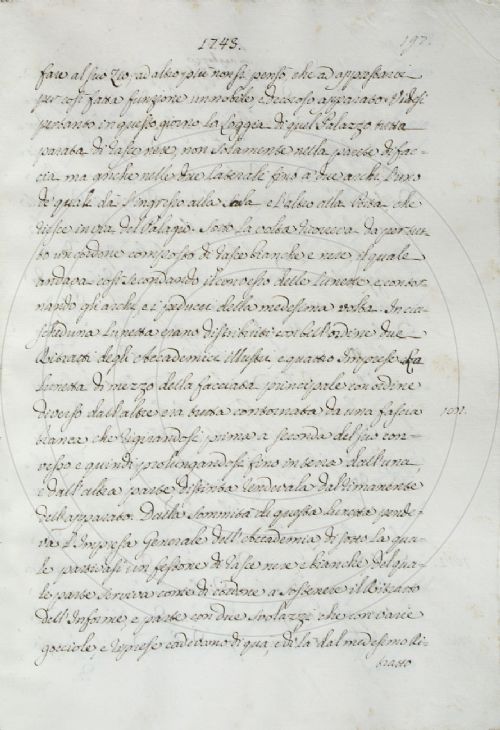 1743.
197.
fare al suo zio, ad altro più non si pensò, che ad apprestarsi
per così fatta funzione un nobile, e decoroso apparato. Videsi
pertanto in questo giorno la Loggia di quel Palazzo tutta
parata di rasce nere, non solamente nella parete di fac-
cia, ma anche nelle due laterali fino a due archi, l'uno
de quali dà l'ingresso alla Sala e l'altro alla Porta che
riesce in via del Palagio. Sotto la volta ricorreva da per tut-
to un cordone composto di rasce bianche e nere, il quale
andava così secondando il convesso delle Lunette e contor-
nando gli archi, e i peducci della medesima volta. In cia-
scheduna Lunetta erano distribuiti con bell'ordine due
Ritratti degli Accademici illustri, e quattro Imprese. La
lunetta di mezzo della facciata principale con ordine
diverso dall'altre era tutta contornata da una fascia
bianca che rigirandosi prima a seconda del suo con-
vesso e quindi prolungandosi fino in terra dall'una,
e dall'altra parte distinta rendevala dal rimanente
dell'apparato. Dalla sommità di questa lunetta pende-
va l'Impresa Generale dell'Accademia di sotto la qua-
le partivasi un festone di rasce nere e bianche del qua-
le parte serviva come di cordone a sostenere il Ritratto
dell'Informe, e parte con due svolazzi che con varie
gocciole e riprese cadevano di qua, e di là dal medesimo Ri-
tratto